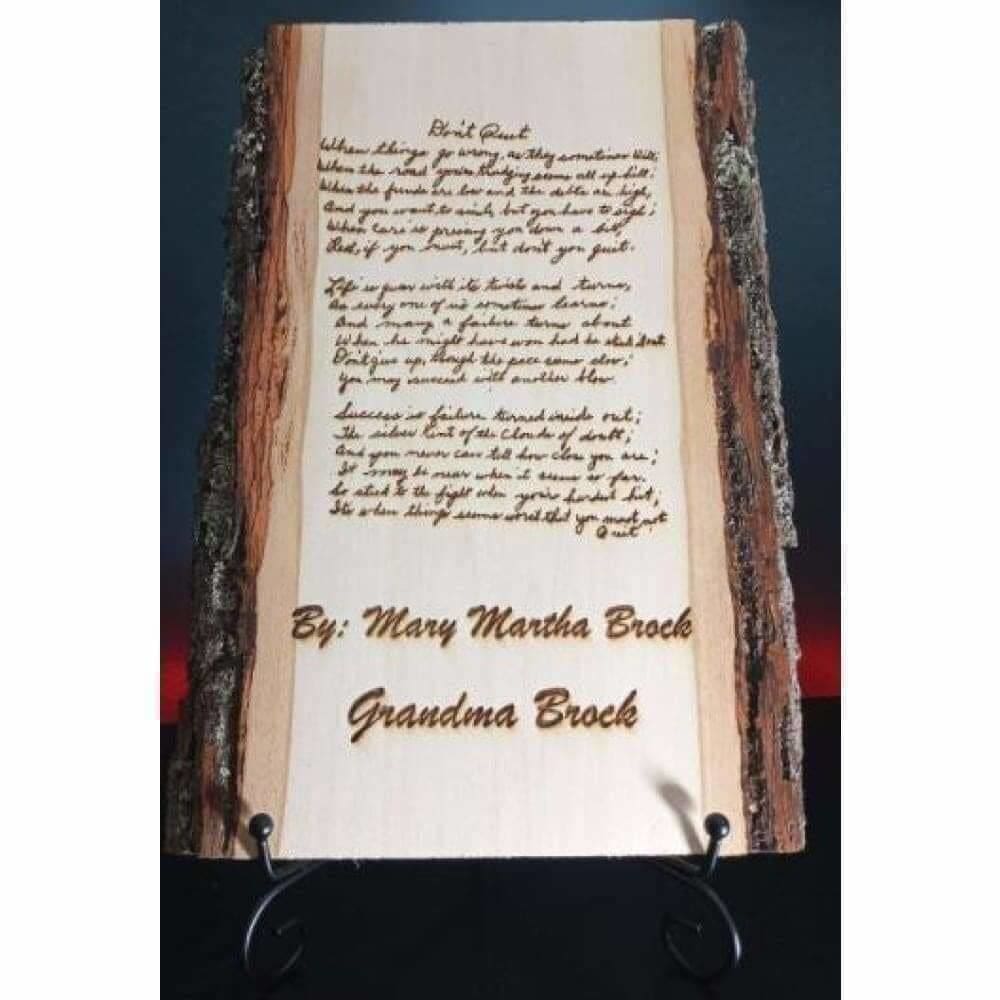 Don't Quit
When things go wrong, as they sometimes will;
When the road you're trudging seems all up hill;
When the funds are low and the debts are high,
And you want to smile, but you have to sigh;
When care is pressing you down a bit,
Rest, if you must, but don't you quit.
Life is queer with its twists and turns,
As every one of us sometimes learns;
And many a failure turns about
When he might have won had he stuck it out
Don't give up, though the pace seems slow;
You may succeed with another blow
Success is failure turned inside out;
The silver tint of the clouds of doubt;
And you never can tell how close you are;
It may be near when it seems so far.
So stick to the fight when you're hardest hit;
Its when things seems worst that you must not
Quit
By: Mary Martha Brock
Grandma Brock